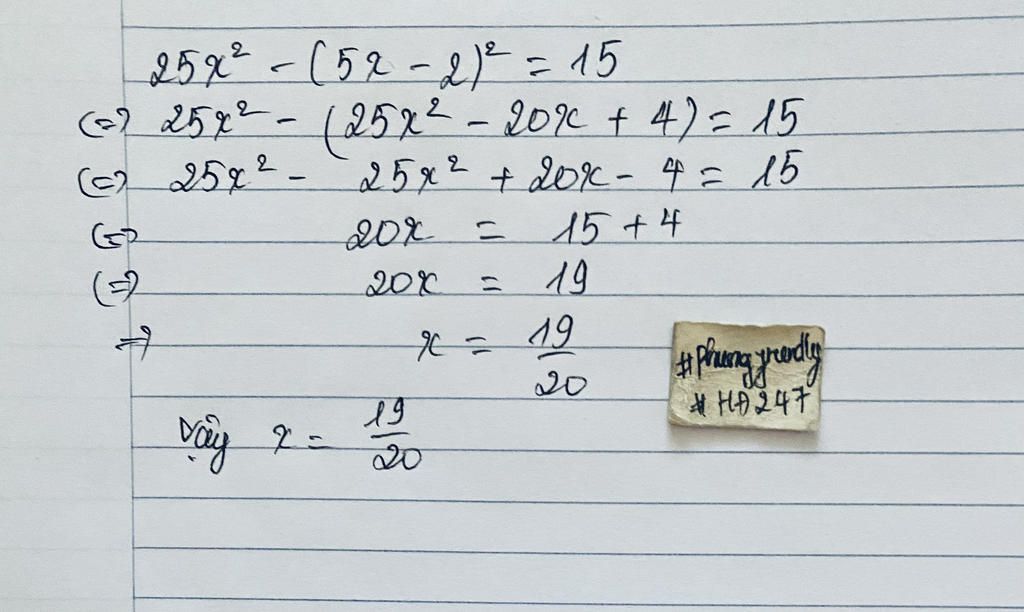 25x² - (5x - 2)² = 15
(=) 25x² - (25x² - 20x + 4) = 15
(=) 25x² - 25x² + 20x - 4 = 15
(=) 20x = 15 + 4
(=) 20x = 19
=) x = 19/20
Vậy x = 19/20
# HĐ247